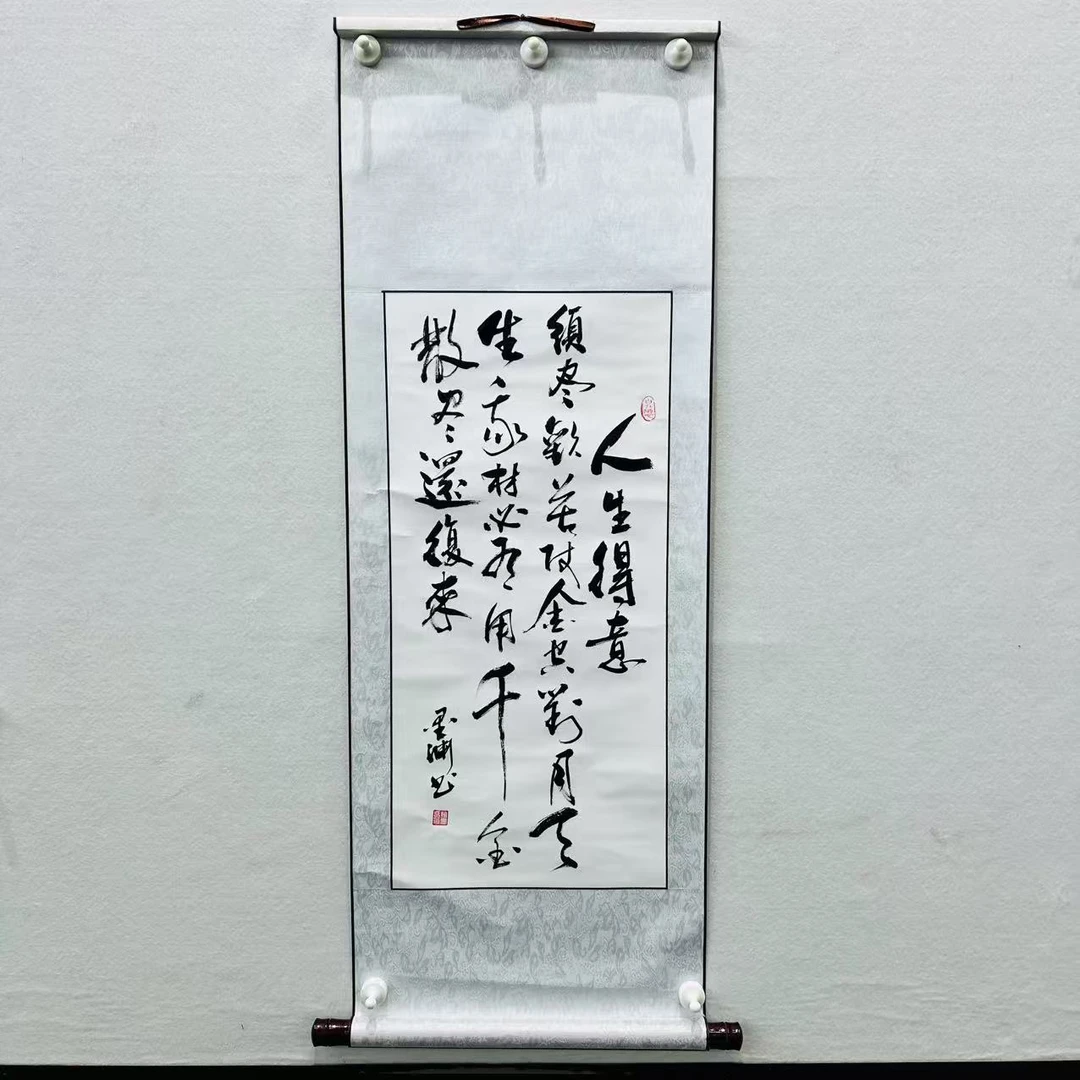 人生得意
須尽歡莫使金空對月天
生我材必有用千金
散尽還復來
墨 书